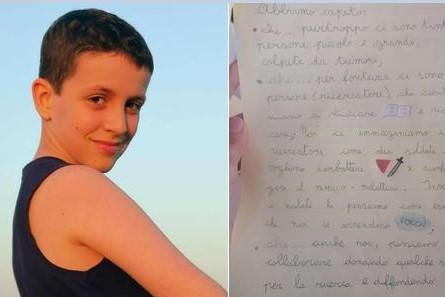 Abbiamo capito:
• che... purtroppo ci sono tant
persone, piccole e grandi,
colpite da tumori;
• che... per fortuna ci sono
persone (ricercatori) che conti
nuano a studiare e
Noi ci immaginiamo
ricercatori come dei soldati
vogliono combattere e
gere il nemico-malattia.
e malate le pensiamo come
che non si arrendono
• che... anche noi, possiamo
collaborare donando qualche s
per la ricerca e diffondendo